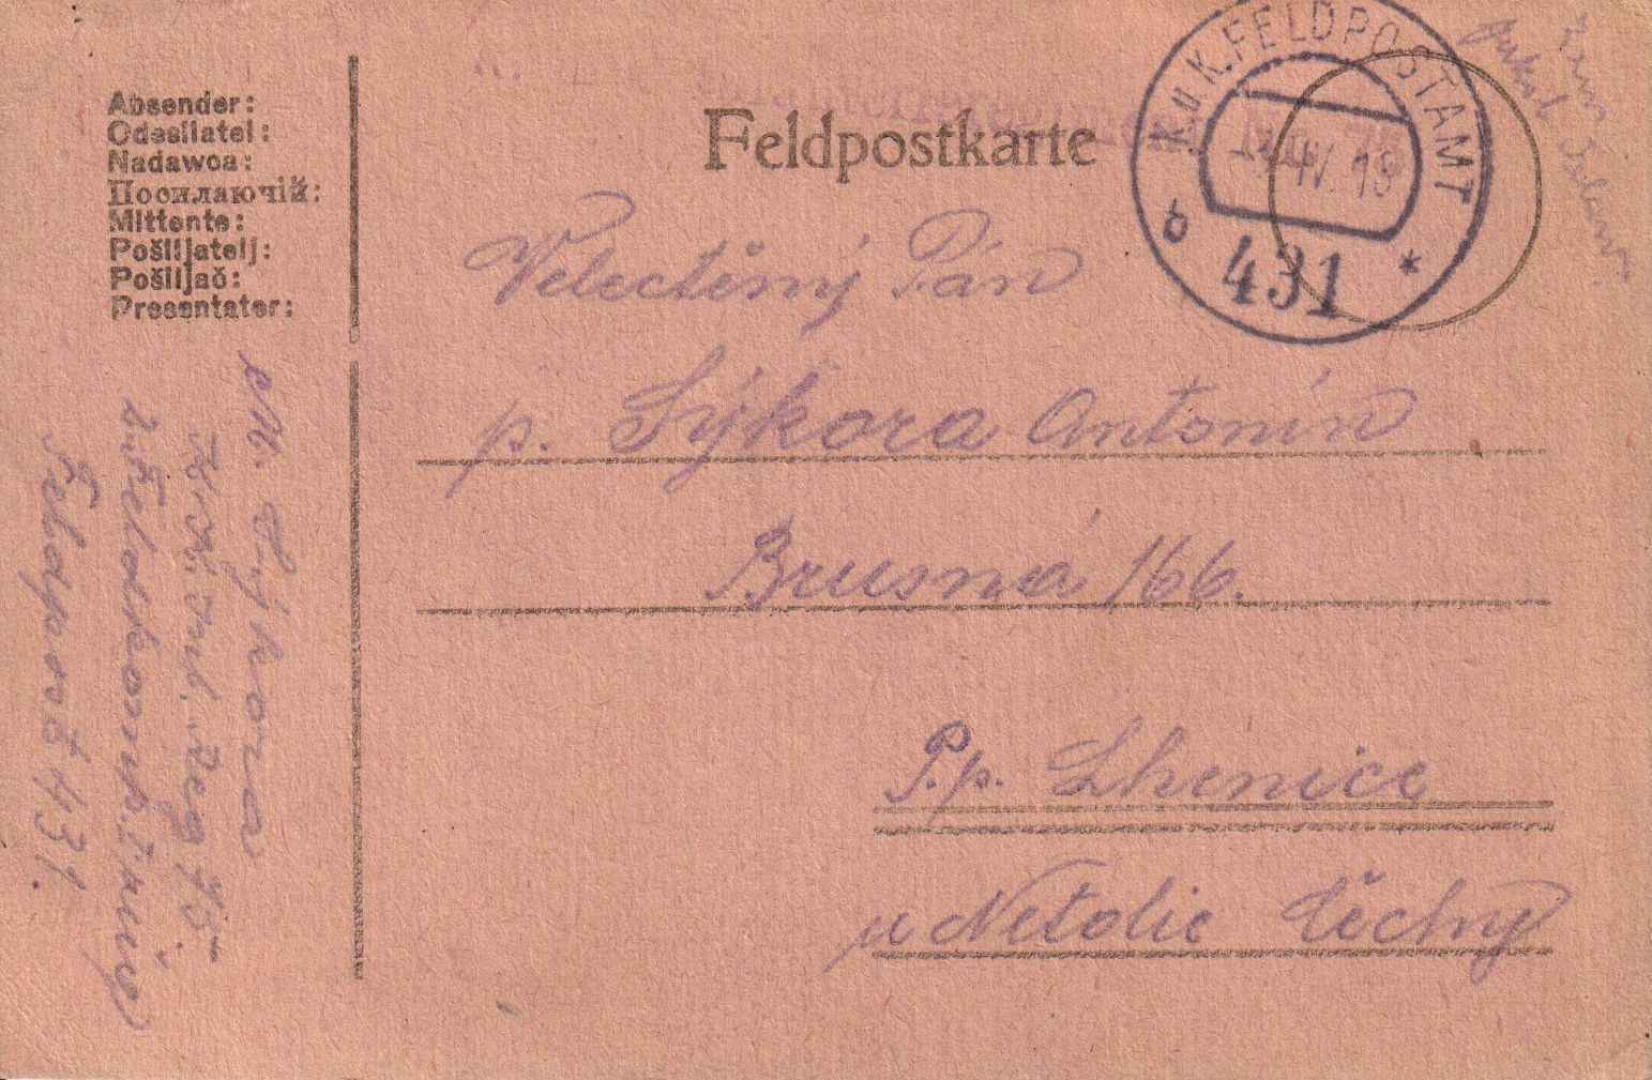 Absender:
Odesilatel:
Nadawca:
Посилаючій:
Mittente:
Pošiljatelj:
Pošiljač:
Presentater:
Feldpostkarte
K.u.K. FELDPOSTAMT
IV. 18
b 431 *
Velectěný Pán
p. Sýkora Antonín
Brusná 166.
P.p. Lhenice
u Netolic Čechy
M. Sýkora
K.k. Inf. Reg 75
Feldpost 431.